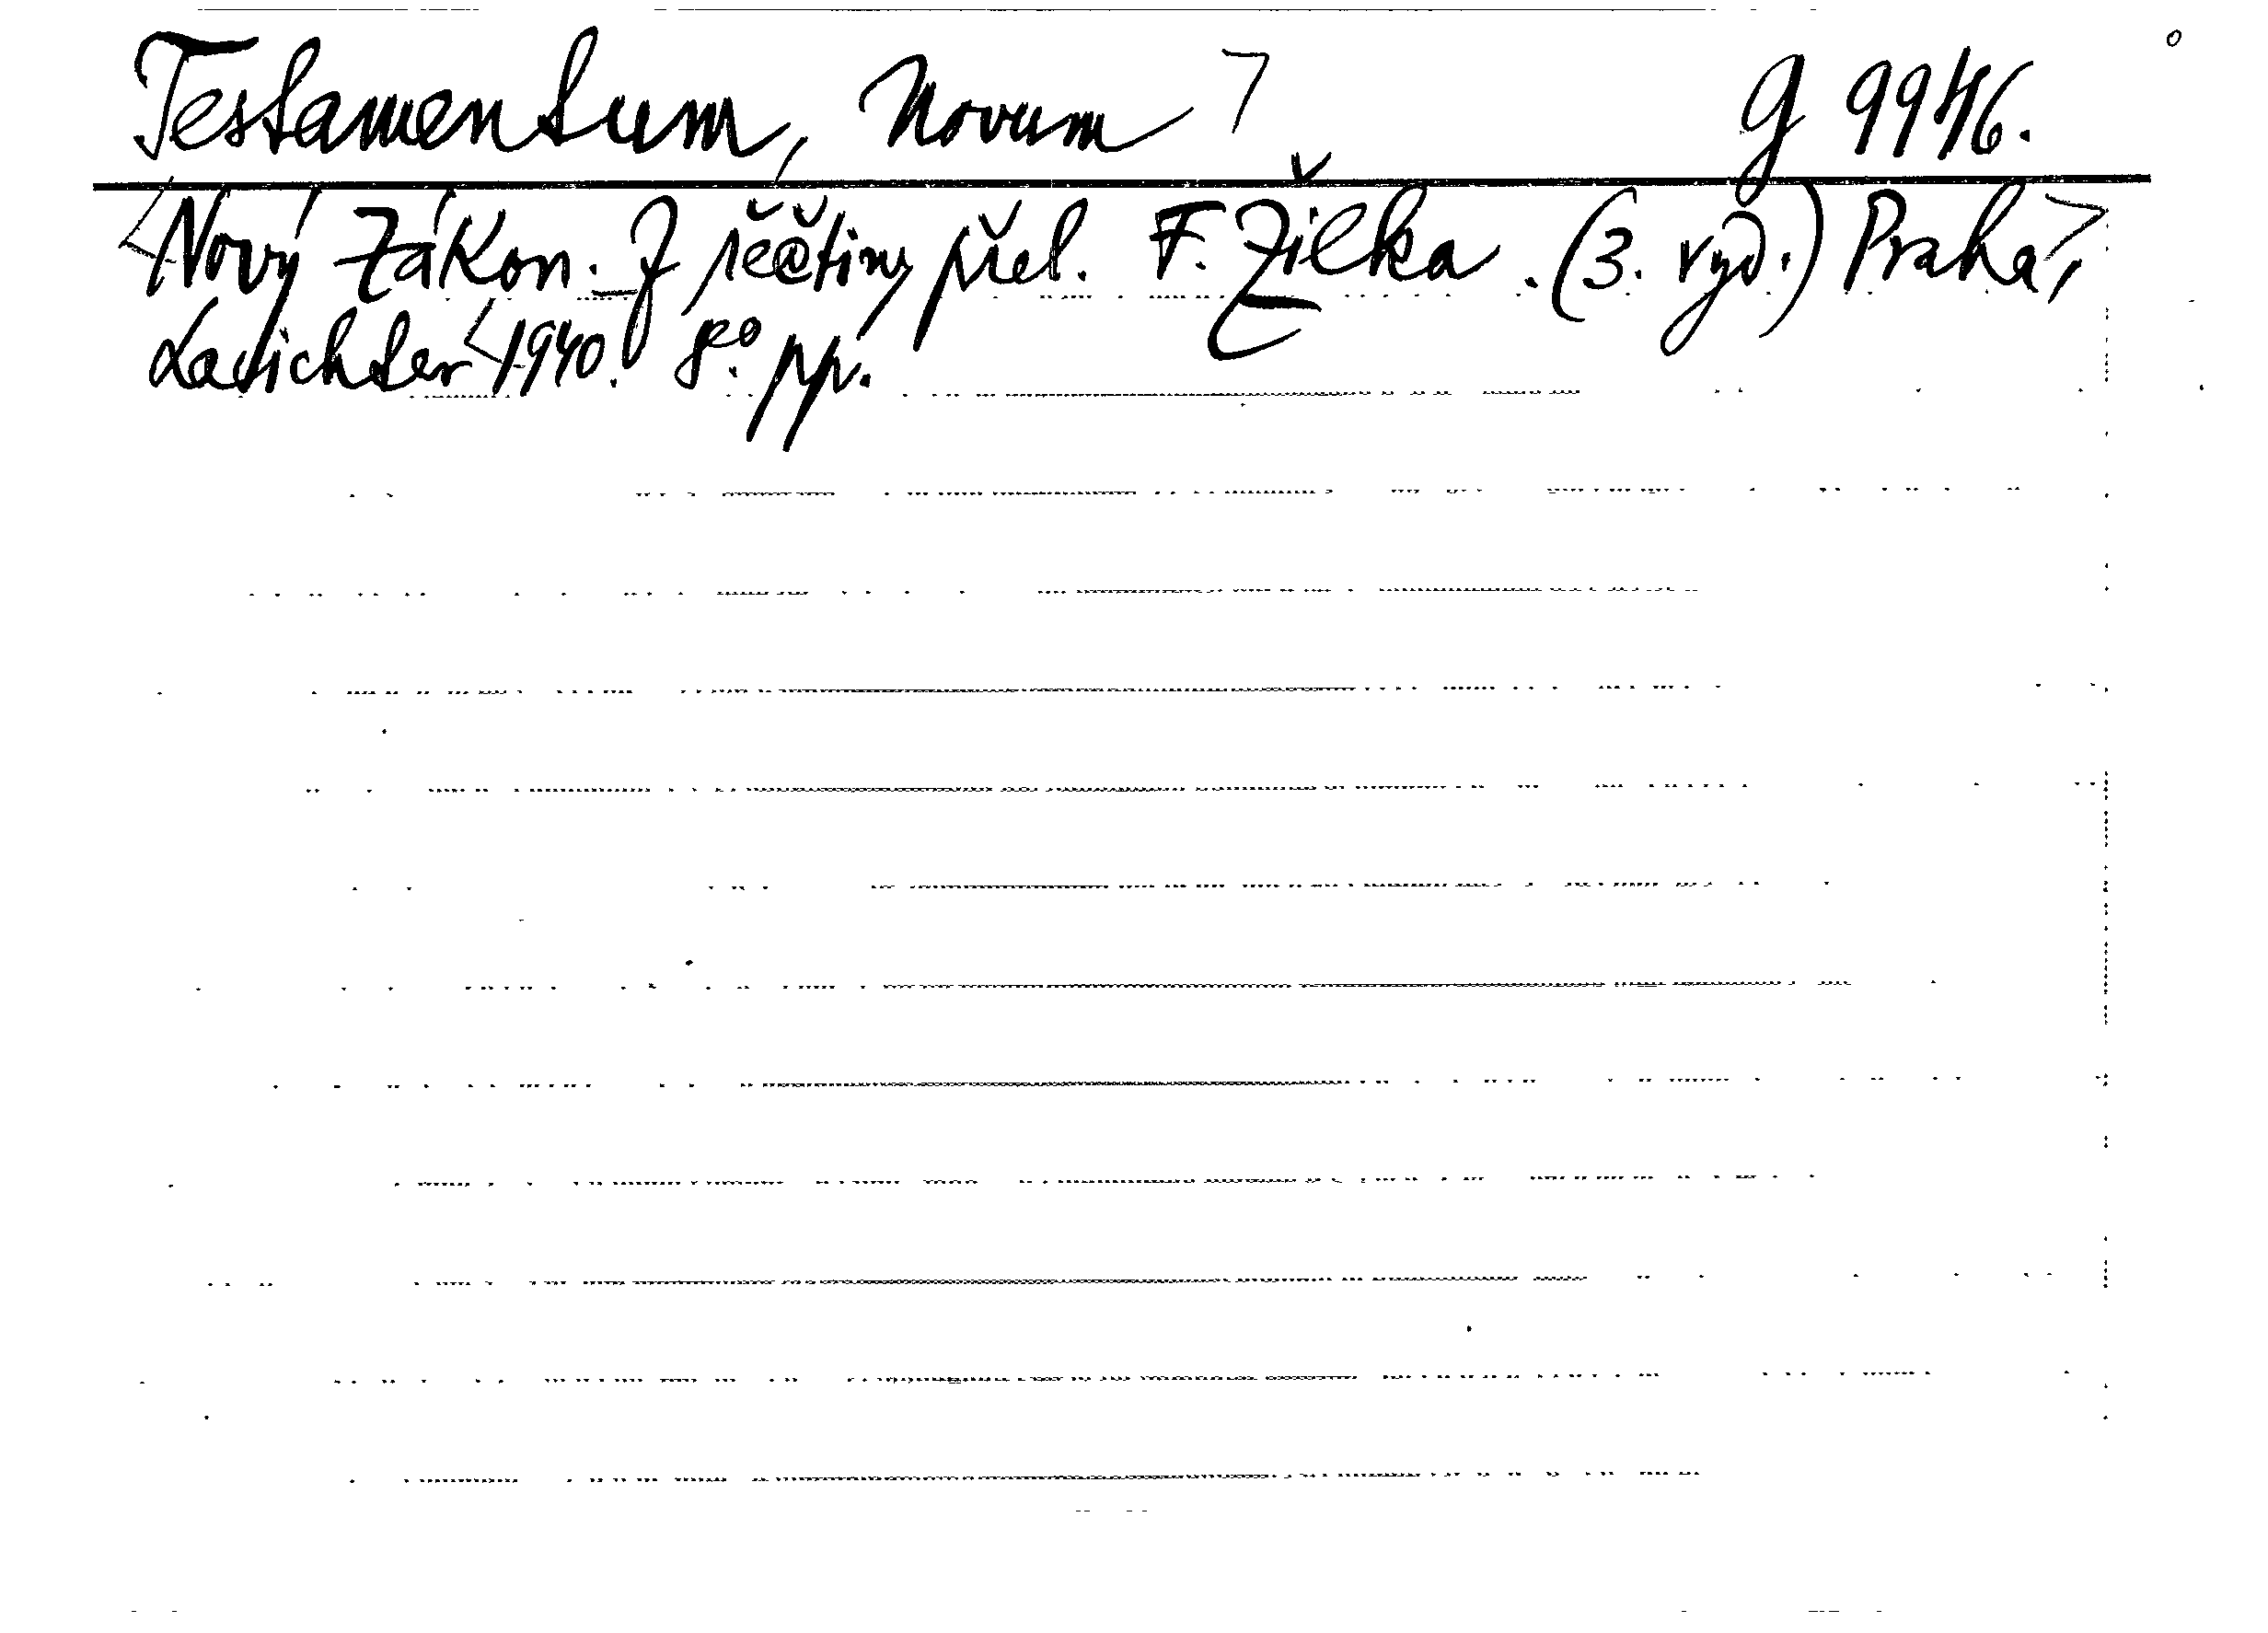 Testamentum, Novum G 9946.
Nový Zákon. Z řečtiny přel. F. Žilka. (3. vyd.) Praha,
Laichter 1940. 8°. pp.